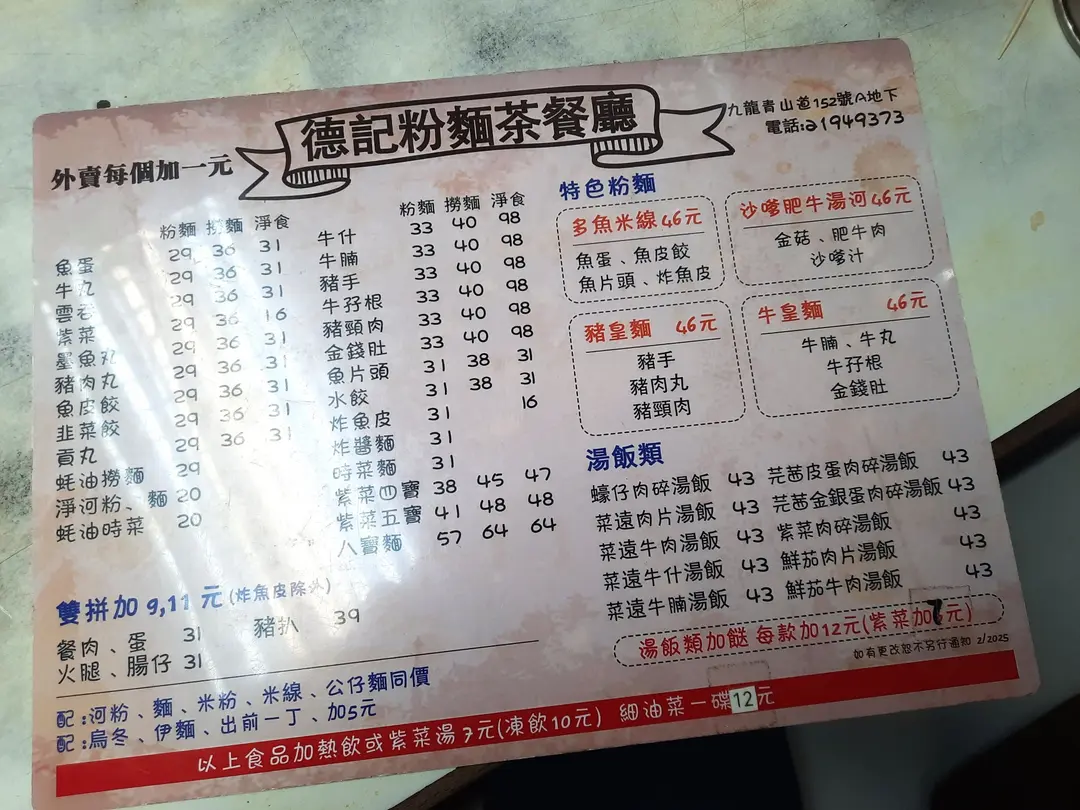 德記粉麵茶餐廳
九龍青山道152號A地下
電話:21949373
外賣每個加一元
粉麵 撈麵 淨食
魚蛋 29 36 31
牛丸 29 36 31
雲吞 29 36 31
紫菜 29 36 16
墨魚丸 29 36 31
豬肉丸 29 36 31
魚皮餃 29 36 31
韭菜餃 29 36 31
貢丸 29 36 31
蚝油撈麵 29
淨河粉、麵 20
蚝油時菜 20
粉麵 撈麵 淨食
牛什 33 40 98
牛腩 33 40 98
豬手 33 40 98
牛孖根 33 40 98
豬頸肉 33 40 98
金錢肚 33 40 98
魚片頭 31 38 31
水餃 31 38 31
炸魚皮 31 16
炸醬麵 31
時菜麵 31
紫菜四寶 38 45 47
紫菜五寶 41 48 48
八寶麵 57 64 64
雙拼加 9,11 元 (炸魚皮除外)
餐肉、蛋 31 豬扒 39
火腿、腸仔 31
配:河粉、麵、米粉、米線、公仔麵同價
配:烏冬、伊麵、出前一丁、加5元
特色粉麵
多魚米線46元
魚蛋、魚皮餃
魚片頭、炸魚皮
沙嗲肥牛湯河46元
金菇、肥牛肉
沙嗲汁
豬皇麵 46元
豬手
豬肉丸
豬頸肉
牛皇麵 46元
牛腩、牛丸
牛孖根
金錢肚
湯飯類
蠔仔肉碎湯飯 43
菜遠肉片湯飯 43
菜遠牛肉湯飯 43
菜遠牛什湯飯 43
菜遠牛腩湯飯 43
芫茜皮蛋肉碎湯飯 43
芫茜金銀蛋肉碎湯飯 43
紫菜肉碎湯飯 43
鮮茄肉片湯飯 43
鮮茄牛肉湯飯 43
湯飯類加餸 每款加12元(紫菜加7元)
如有更改恕不另行通知 2/2025
以上食品加熱飲或紫菜湯7元(凍飲10元) 細油菜一碟12元